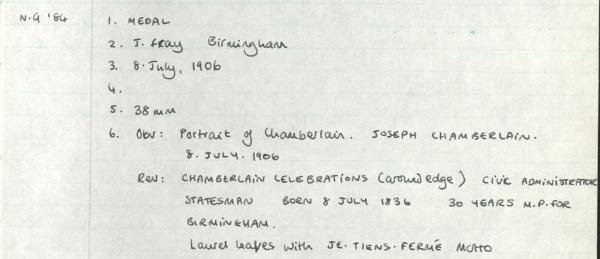 N.G '84 1. MEDAL
2. J. Fray Birmingham
3. 8. July, 1906
4.
5. 38 mm
6. Obv: Portrait of Chamberlain. JOSEPH CHAMBERLAIN.
8. JULY. 1906
Rev: CHAMBERLAIN CELEBRATIONS (around edge) CIVIC ADMINISTRATOR
STATESMAN BORN 8 JULY 1836 30 YEARS M.P. FOR
BIRMINGHAM.
Laurel leaves with JE. TIENS. FERMÉ MOTTO